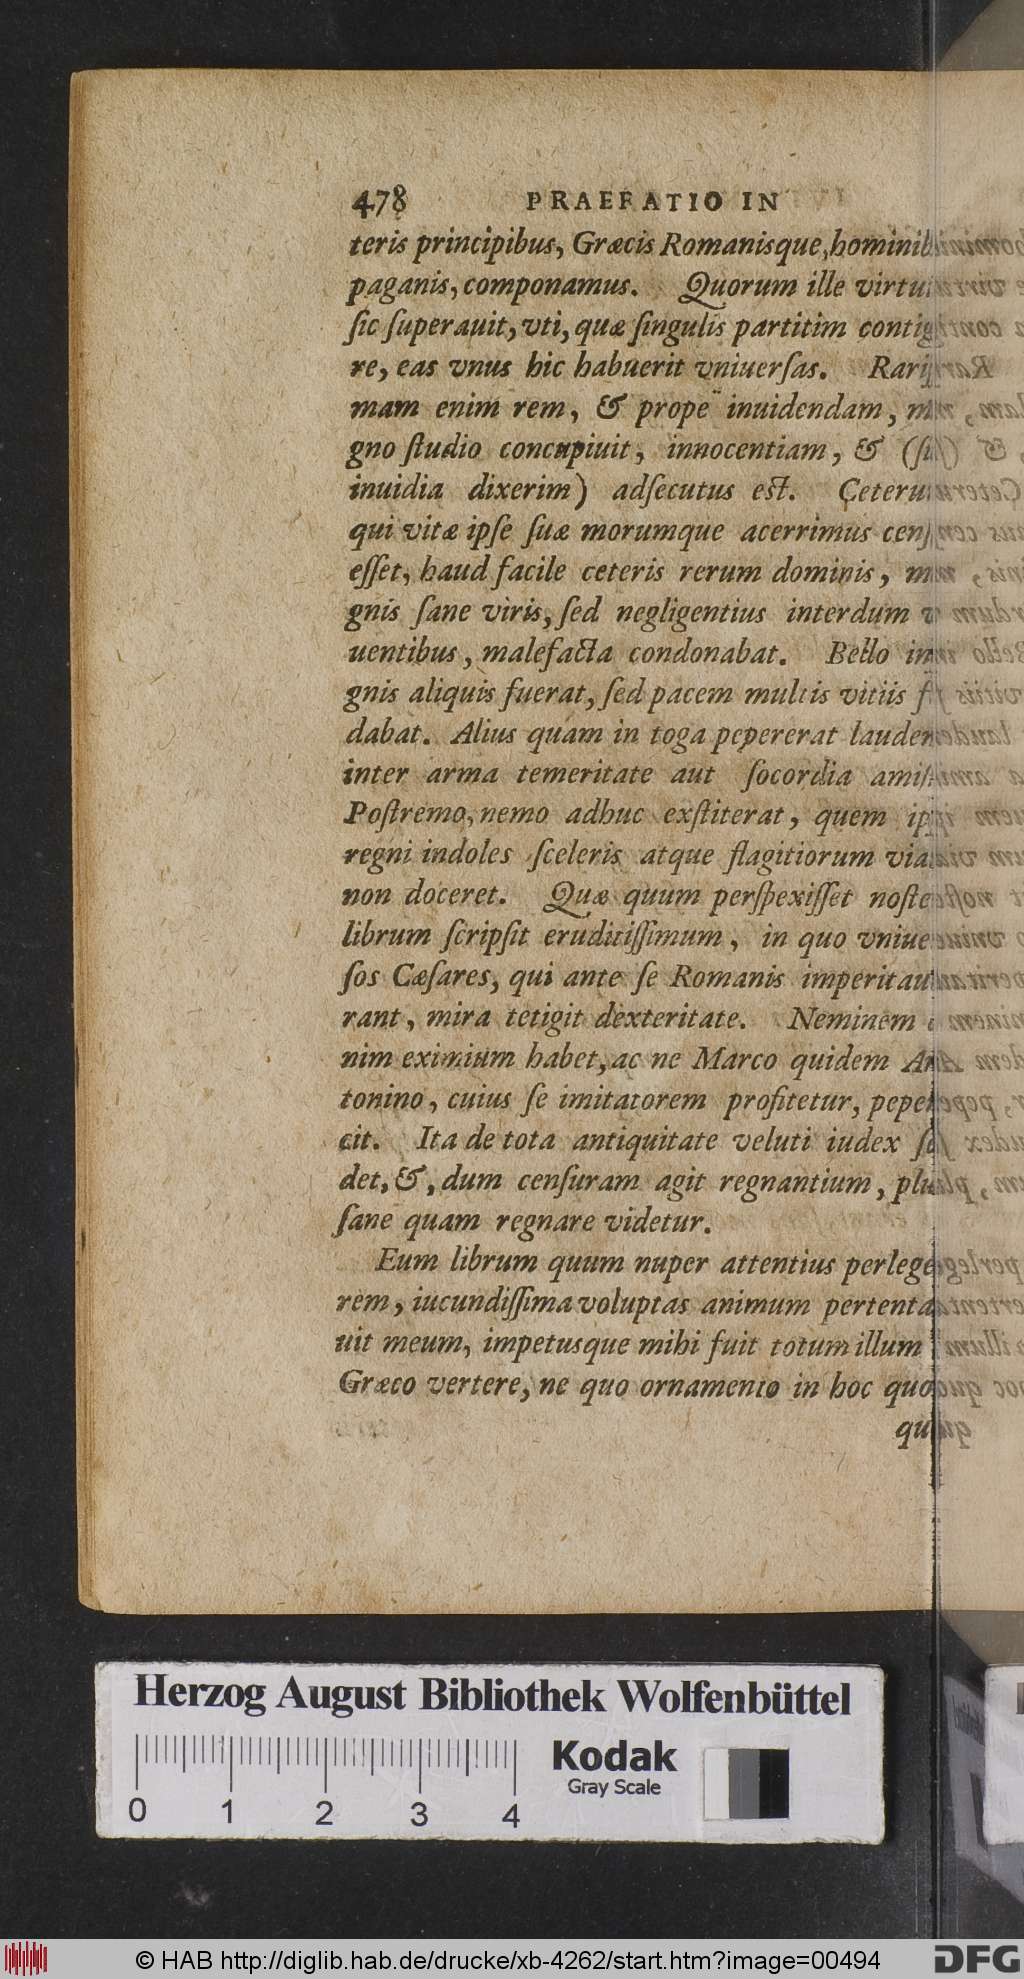 478 PRAEFATIO IN
teris principibus, Græcis Romanisque, homini
paganis, componamus. Quorum ille virtu
ſic ſuperauit, vti, quæ ſingulis partitim contig
re, eas vnus hic habuerit vniuerſas. Rariſ
mam enim rem, & prope inuidendam, m
gno ſtudio concupiuit, innocentiam, & (ſi
inuidia dixerim) adſecutus est. Ceteru
qui vitæ ipſe ſuæ morumque acerrimus cenſ
eſſet, haud facile ceteris rerum dominis, m
gnis ſane viris, ſed negligentius interdum v
uentibus, malefacta condonabat. Bello in
gnis aliquis fuerat, ſed pacem multis vitiis f
dabat. Alius quam in toga pepererat laudem
inter arma temeritate aut ſocordia amiſ
Poſtremo, nemo adhuc exſtiterat, quem ip
regni indoles ſceleris atque flagitiorum via
non doceret. Quæ quum perſpexiſſet noſte
librum ſcripſit eruditiſſimum, in quo vniue
ſos Cæſares, qui ante ſe Romanis imperitau
rant, mira tetigit dexteritate. Neminem e
nim eximium habet, ac ne Marco quidem An
tonino, cuius ſe imitatorem profitetur, peper
cit. Ita de tota antiquitate veluti iudex ſe
det, &, dum cenſuram agit regnantium, plu
ſane quam regnare videtur.
Eum librum quum nuper attentius perlege
rem, iucundiſſima voluptas animum pertenta
uit meum, impetusque mihi fuit totum illum
Græco vertere, ne quo ornamento in hoc quo
qu
Herzog August Bibliothek Wolfenbüttel
Kodak
Gray Scale
0 1 2 3 4
© HAB http://diglib.hab.de/drucke/xb-4262/start.htm?image=00494
DFG